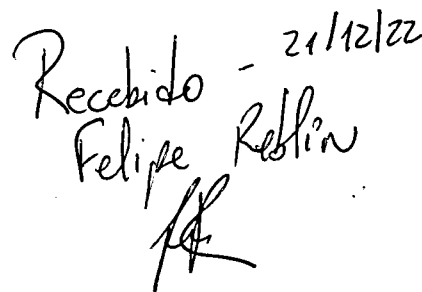 Recebido - 21/12/22
Felipe Reblin